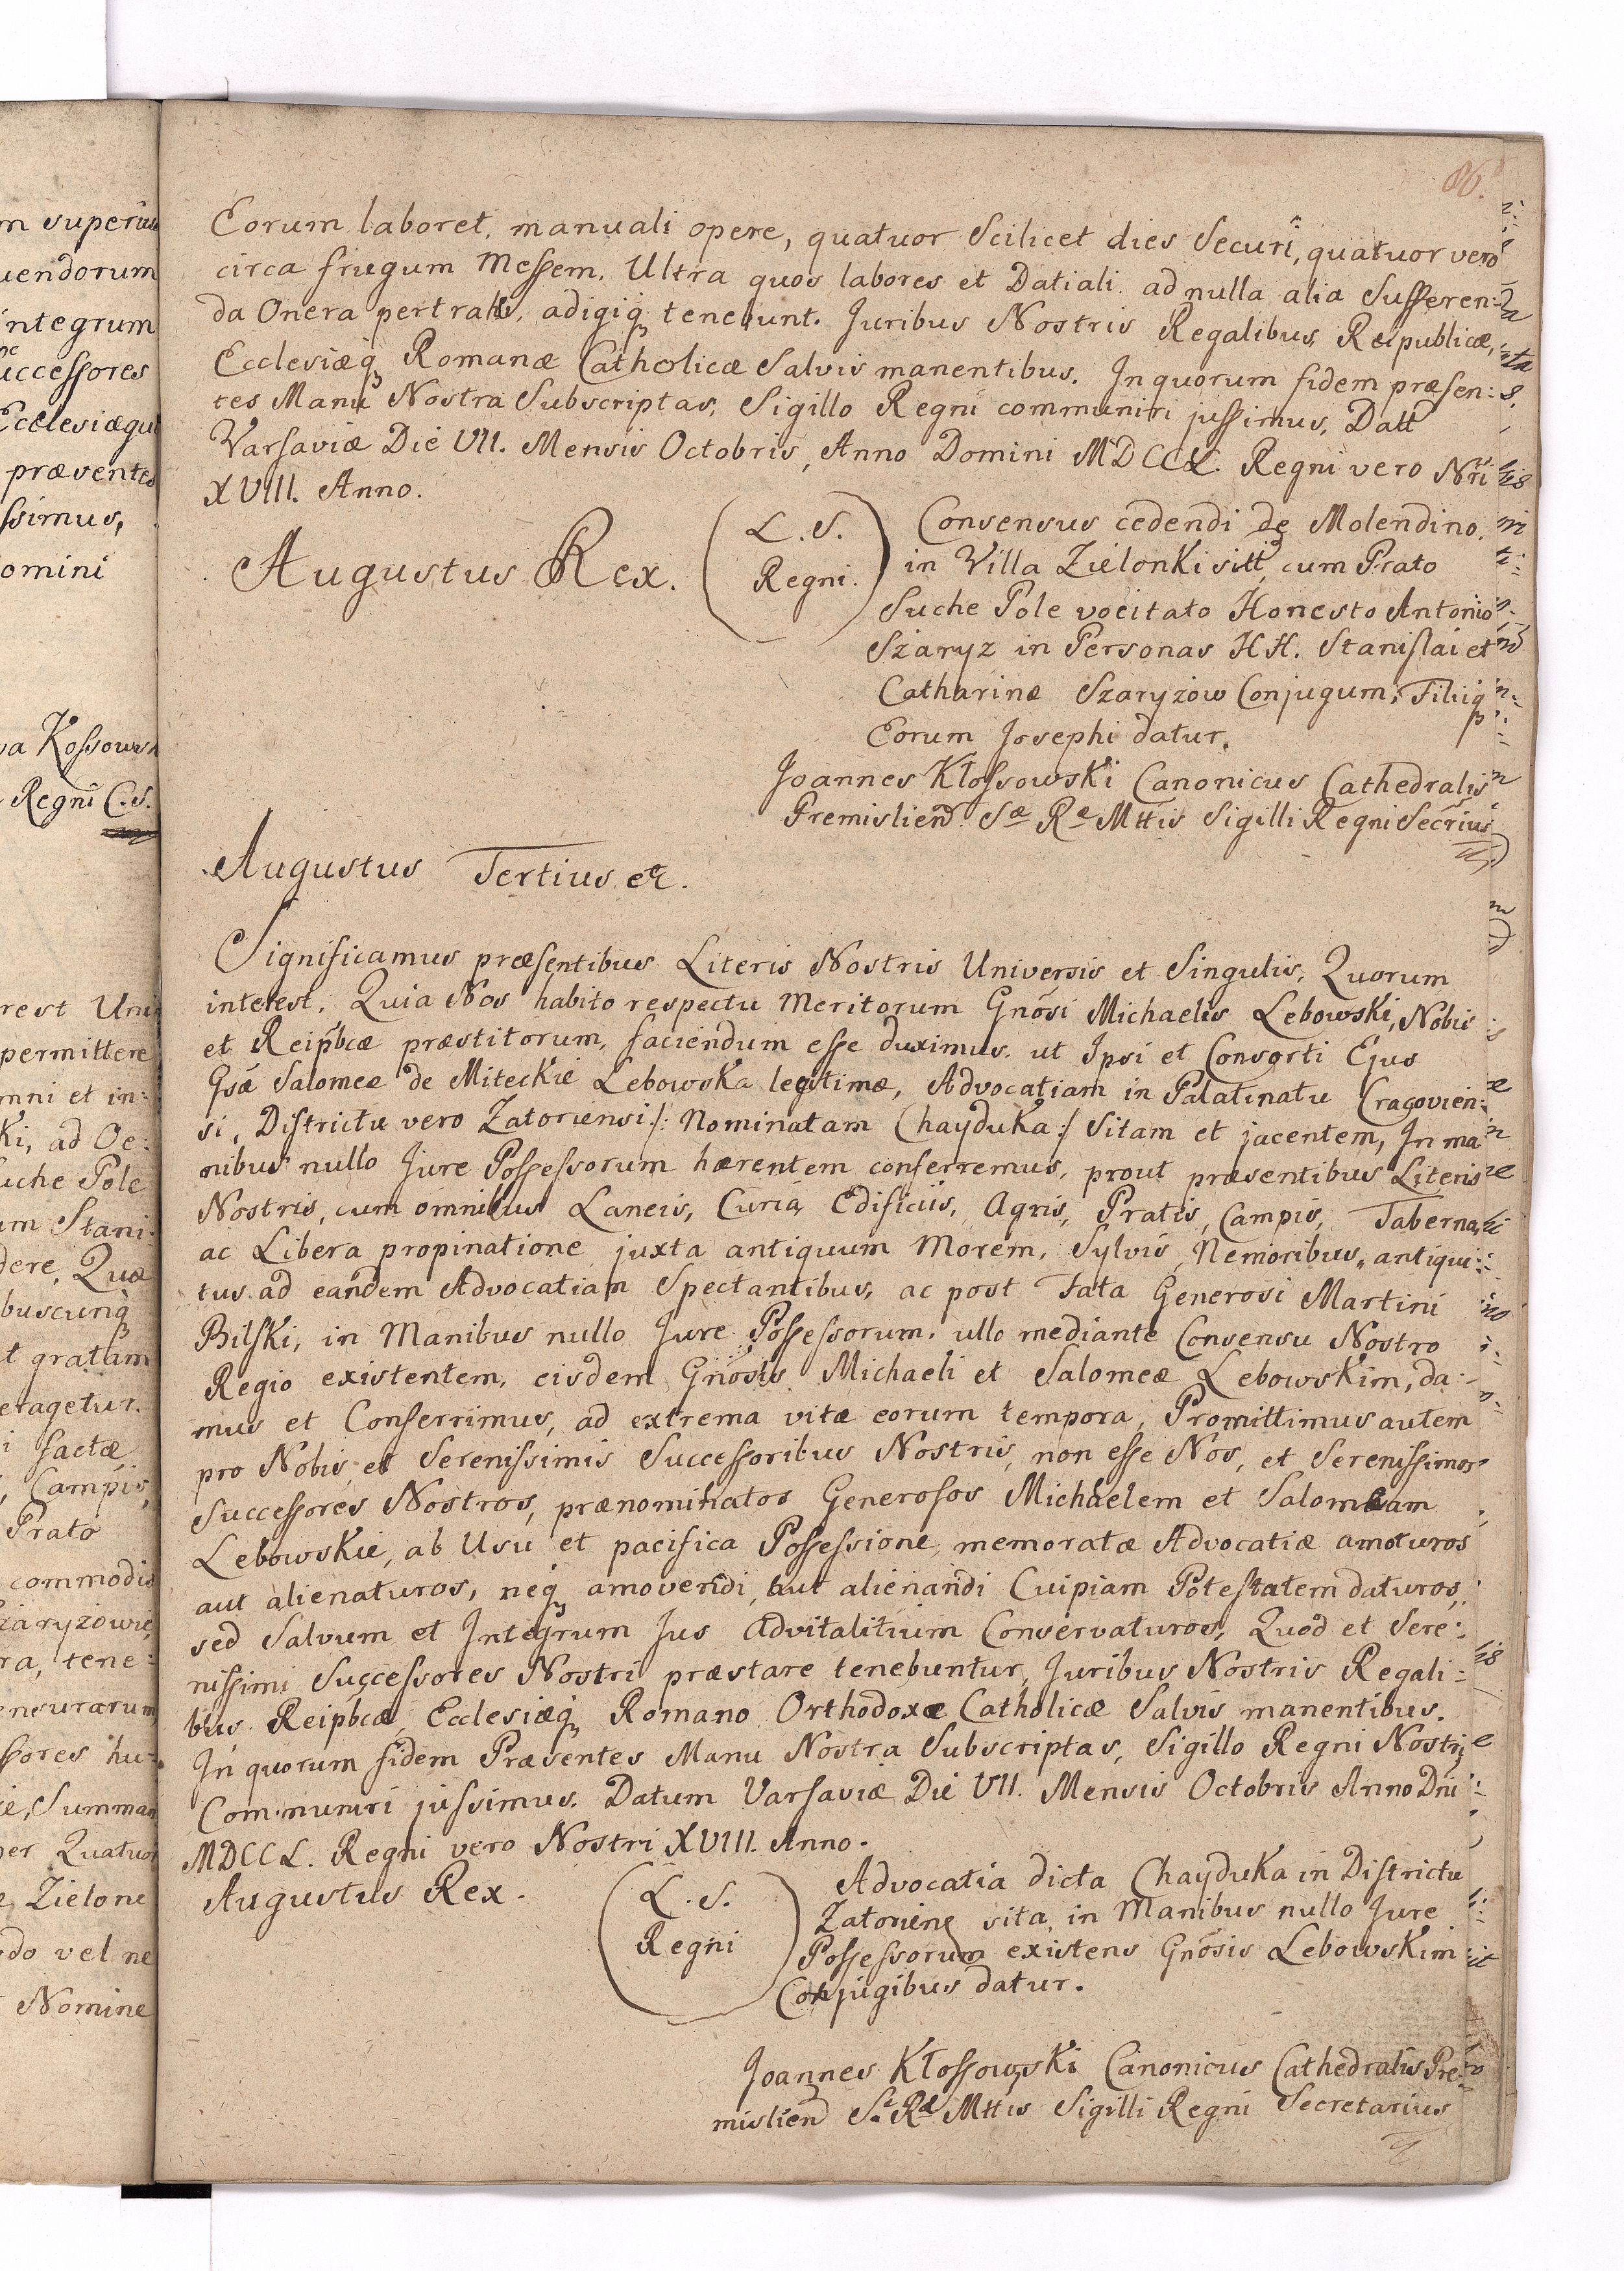 86.
Eorum laboret, manuali opere, quatuor Scilicet dies Securi, quatuor vero
circa frugum Messem. Ultra quos labores et Datiali. ad nulla alia Sufferen:
da Onera pertrahi, adigiq tenebunt. Juribus Nostris Regalibus, Reipublicæ,
Ecclesiæq Romanæ Catholicæ Salvis manentibus. In quorum fidem præsen:
tes Manu Nostra Subscriptas, Sigillo Regni communiri jussimus, Datt
Varsaviæ Die VII. Mensis Octobris, Anno Domini MDCCL. Regni vero Nri
XVIII. Anno.
Augustus Rex.
L. S.
Regni.
Consensus cedendi de Molendino
in Villa Zielonki sitt, cum Prato
Suche Pole vocitato Honesto Antonio
Szaryz in Personas HH. Stanislai et
Catharinæ Szaryzow Conjugum, Filiiq
Eorum Josephi datur.
Joannes Kłossowski Canonicus Cathedralis
Premislien Sæ Ræ Mttis Sigilli Regni Secrius
Augustus Tertius etc.
Significamus præsentibus Literis Nostris Universis et Singulis, Quorum
interest, Quia Nos habito respectu Meritorum Gnosi Michaelis Lebowski, Nobis
et Reipbcæ præstitorum, faciendum esse duximus. ut Ipsi et Consorti Ejus
Gsæ Salomeæ de Miteckie Lebowska legitimæ, Advocatiam in Palatinatu Cracovien:
si, Districtu vero Zatoriensi /: Nominatam Chayduka :/ Sitam et jacentem, In ma
nibus nullo Jure Possessorum hærentem conferremus, prout præsentibus Literis
Nostris, cum omnibus Laneis, Curia, Edificiis, Agris, Pratis, Campis, Taberna,
ac Libera propinatione juxta antiquum Morem, Sylvis, Nemoribus, antiqui:
tus ad eandem Advocatiam Spectantibus, ac post Fata Generosi Martini
Bilski, in Manibus nullo Jure Possessorum. ullo mediante Consensu Nostro
Regio existentem, eisdem Gnosis Michaeli et Salomeæ Lebowskim, da:
mus et Conferrimus, ad extrema vitæ eorum tempora, Promittimus autem
pro Nobis et Serenissimis Successoribus Nostris, non esse Nos, et Serenissimos
Successores Nostros, prænominatos Generosos Michaelem et Salomeam
Lebowskie, ab Usu et pacifica Possessione memoratæ Advocatiæ amoturos
aut alienaturos, neq amovendi, aut alienandi Cuipiam Potestatem daturos,
sed Salvum et Integrum Jus Advitalitium Conservaturos, Quod et Sere:
nissimi Successores Nostri præstare tenebuntur, Juribus Nostris Regali:
bus Reipbcæ, Ecclesiæq Romano Orthodoxæ Catholicæ Salvis manentibus.
In quorum fidem Præsentes Manu Nostra Subscriptas, Sigillo Regni Nostri
Communiri jussimus. Datum Varsaviæ Die VII. Mensis Octobris Anno Dni
MDCCL. Regni vero Nostri XVIII. Anno.
Augustus Rex.
L. S.
Regni
Advocatia dicta Chayduka in Districtu
Zatoriene sita, in Manibus nullo Jure
Possessorum existens Gnosis Lebowskim
Conjugibus datur.
Joannes Kłossowski Canonicus Cathedralis Pre:
mislien Sæ Ræ Mttis Sigilli Regni Secretarius